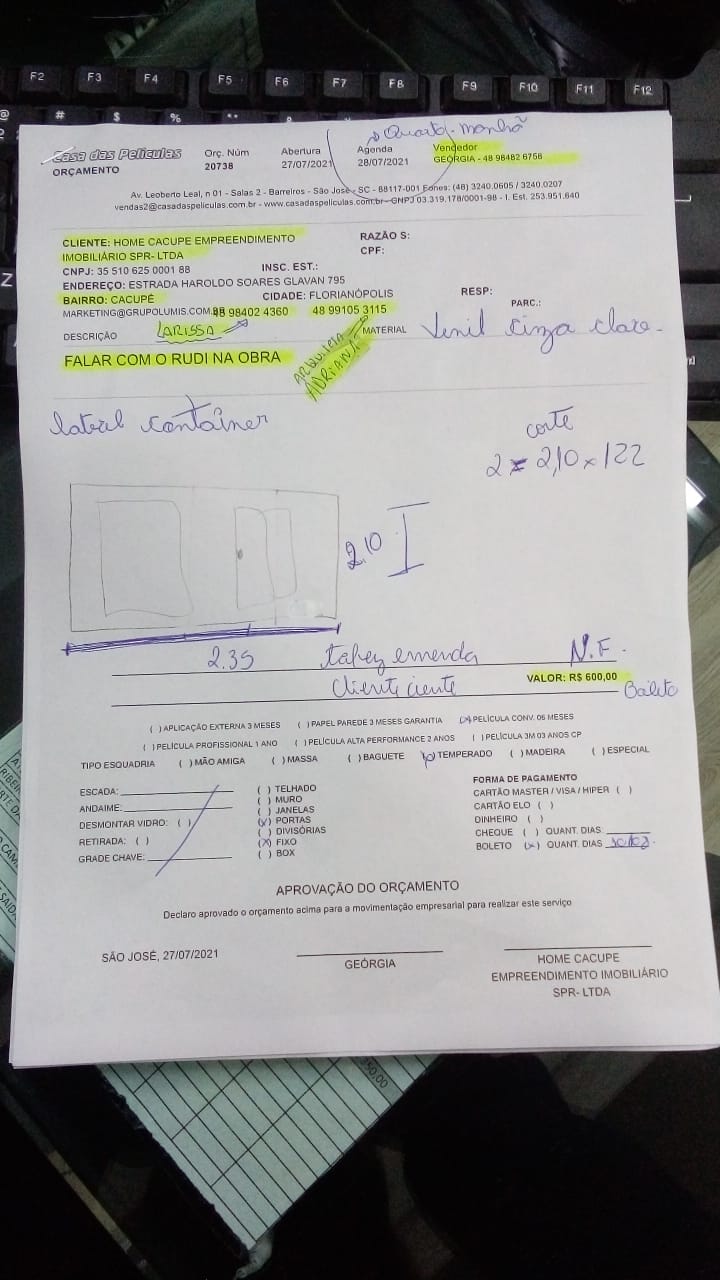 F2 F3 F4 F5 F6 F7 F8 F9 F10 F11 F12
# $ %
Quarta-manhã
Casa das Películas
ORÇAMENTO
Orç. Núm
20738
Abertura
27/07/2021
Agenda
28/07/2021
Vendedor
GEÓRGIA - 48 98482 6758
Av. Leoberto Leal, n 01 - Salas 2 - Barreiros - São José - SC - 88117-001 Fones: (48) 3240.0605 / 3240.0207
vendas2@casadaspeliculas.com.br - www.casadaspeliculas.com.br - CNPJ 03.319.178/0001-98 - I. Est. 253.951.640
CLIENTE: HOME CACUPE EMPREENDIMENTO
IMOBILIÁRIO SPR- LTDA
RAZÃO S:
CPF:
CNPJ: 35 510 625 0001 88
INSC. EST.:
ENDEREÇO: ESTRADA HAROLDO SOARES GLAVAN 795
BAIRRO: CACUPÉ
CIDADE: FLORIANÓPOLIS
RESP:
PARC.:
MARKETING@GRUPOLUMIS.COM.BR 48 98402 4360 48 99105 3115
DESCRIÇÃO
LARISSA
MATERIAL
Venil cinza claro.
FALAR COM O RUDI NA OBRA
ARQUITETA
ADRIANA
lateral container
corte
2 = 2,10 x 122
2.10
2.35
talvez emenda
N.F.
Cliente ciente
VALOR: R$ 600,00
Boleto
( ) APLICAÇÃO EXTERNA 3 MESES ( ) PAPEL PAREDE 3 MESES GARANTIA (x) PELÍCULA CONV. 06 MESES
( ) PELÍCULA PROFISSIONAL 1 ANO ( ) PELÍCULA ALTA PERFORMANCE 2 ANOS ( ) PELÍCULA 3M 03 ANOS CP
TIPO ESQUADRIA ( ) MÃO AMIGA ( ) MASSA ( ) BAGUETE (x) TEMPERADO ( ) MADEIRA ( ) ESPECIAL
ESCADA:
ANDAIME:
DESMONTAR VIDRO: ( )
RETIRADA: ( )
GRADE CHAVE:
( ) TELHADO
( ) MURO
( ) JANELAS
(x) PORTAS
( ) DIVISÓRIAS
(X) FIXO
( ) BOX
FORMA DE PAGAMENTO
CARTÃO MASTER / VISA / HIPER ( )
CARTÃO ELO ( )
DINHEIRO ( )
CHEQUE ( ) QUANT. DIAS:
BOLETO (x) QUANT. DIAS
APROVAÇÃO DO ORÇAMENTO
Declaro aprovado o orçamento acima para a movimentação empresarial para realizar este serviço
SÃO JOSÉ, 27/07/2021
GEÓRGIA
HOME CACUPE
EMPREENDIMENTO IMOBILIÁRIO
SPR- LTDA